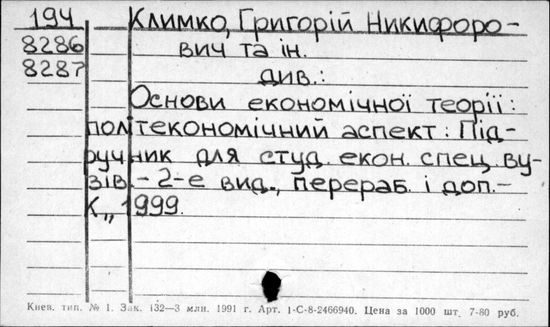 194 Климко, Григорій Никифоро-
8286 вич та ін.
8287 див.:
Основи економічної теорії:
політекономічний аспект: Під-
ручник для студ. екон. спец. ву-
зів. - 2-е вид., перераб. і доп. -
К., 1999.
Киев. тип. № 1. Зак. 132—3 млн. 1991 г. Арт. 1-С-8-2466940. Цена за 1000 шт. 7-80 руб.